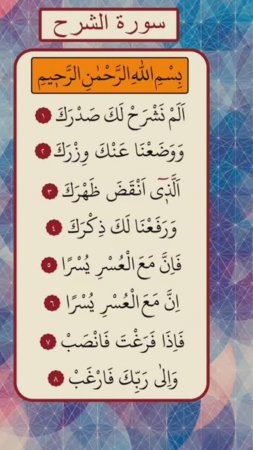 سورة الشرح
بِسْمِ اللهِ الرَّحْمٰنِ الرَّحٖيمِ
اَلَمْ نَشْرَحْ لَكَ صَدْرَكَ ١
وَوَضَعْنَا عَنْكَ وِزْرَكَ ٢
اَلَّذٖٓى اَنْقَضَ ظَهْرَكَ ٣
وَرَفَعْنَا لَكَ ذِكْرَكَ ٤
فَاِنَّ مَعَ الْعُسْرِ يُسْرًا ٥
اِنَّ مَعَ الْعُسْرِ يُسْرًا ٦
فَاِذَا فَرَغْتَ فَانْصَبْ ٧
وَاِلٰى رَبِّكَ فَارْغَبْ ٨